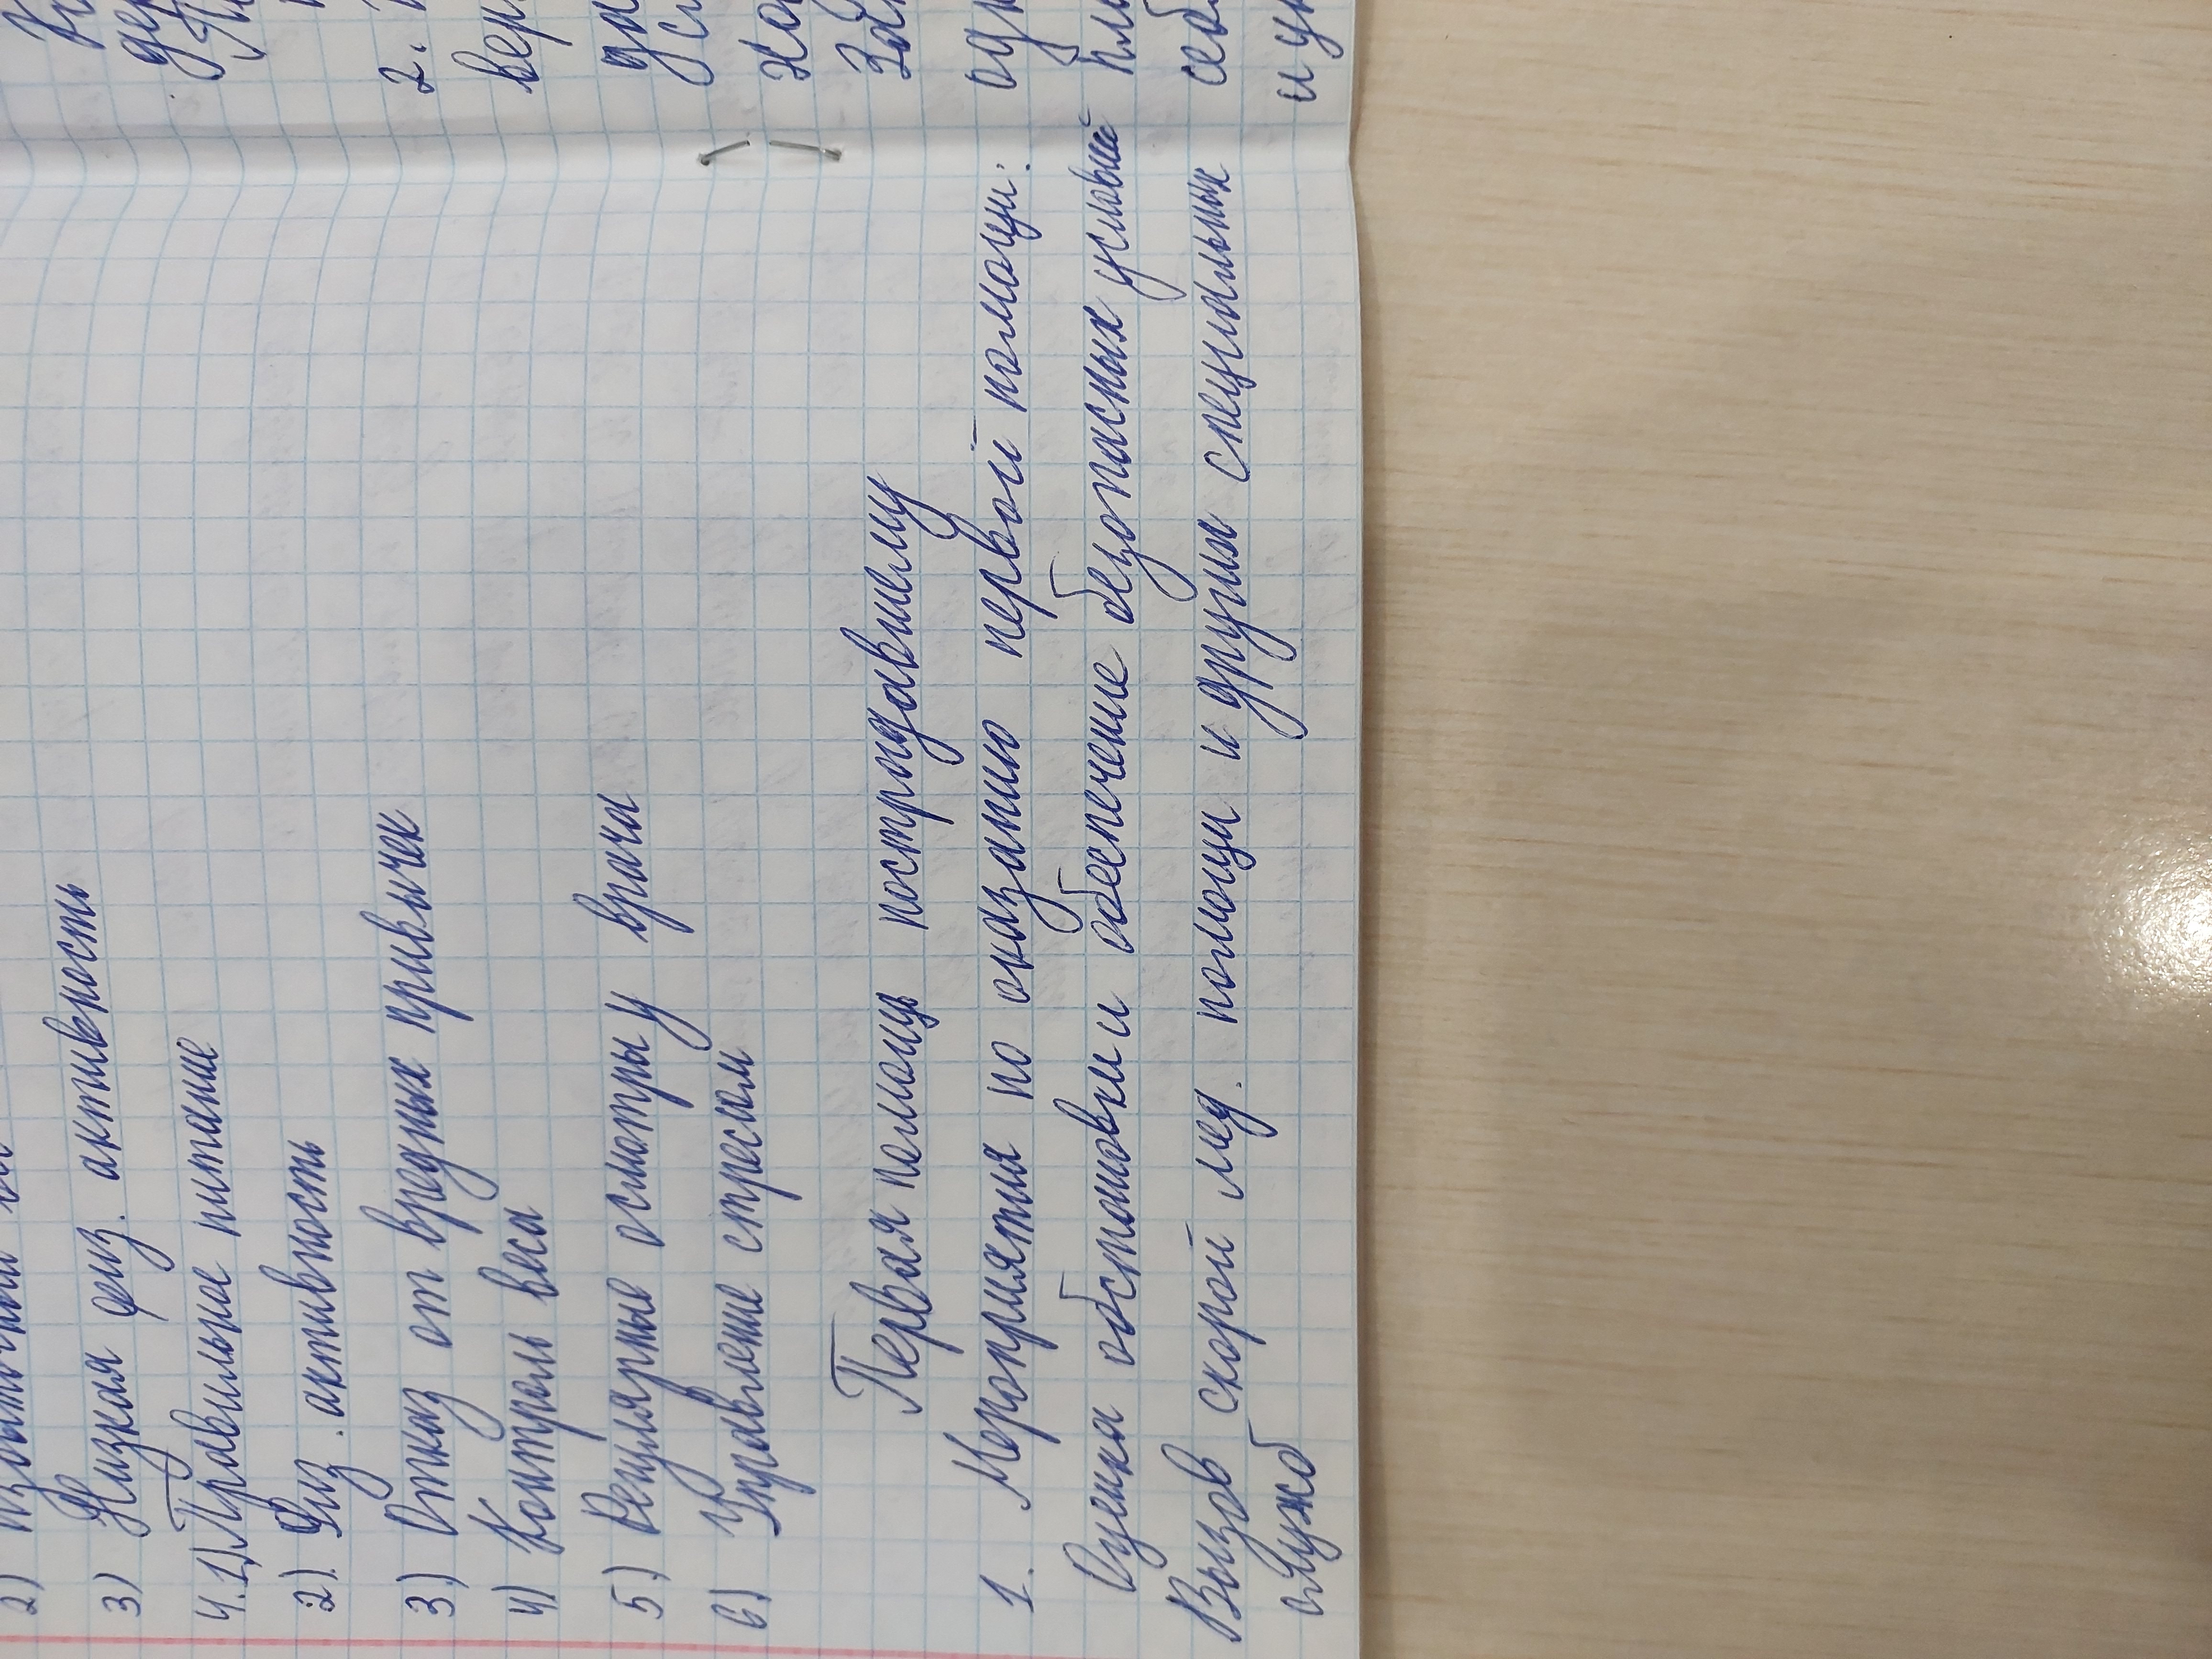 2)
3) Низкая физ. активность
4. 1) Правильное питание
2). Физ. активность
3.) Отказ от вредных привычек
4) Контроль веса
5.) Регулярные осмотры у врача
6) Управление стресом
Первая помощь пострадавшему
1. Мероприятия по оказанию первой помощи:
Оценка обстановки и обеспечение безопасных условий
Вызов скорой мед. помощи и других специальных
служб
2.